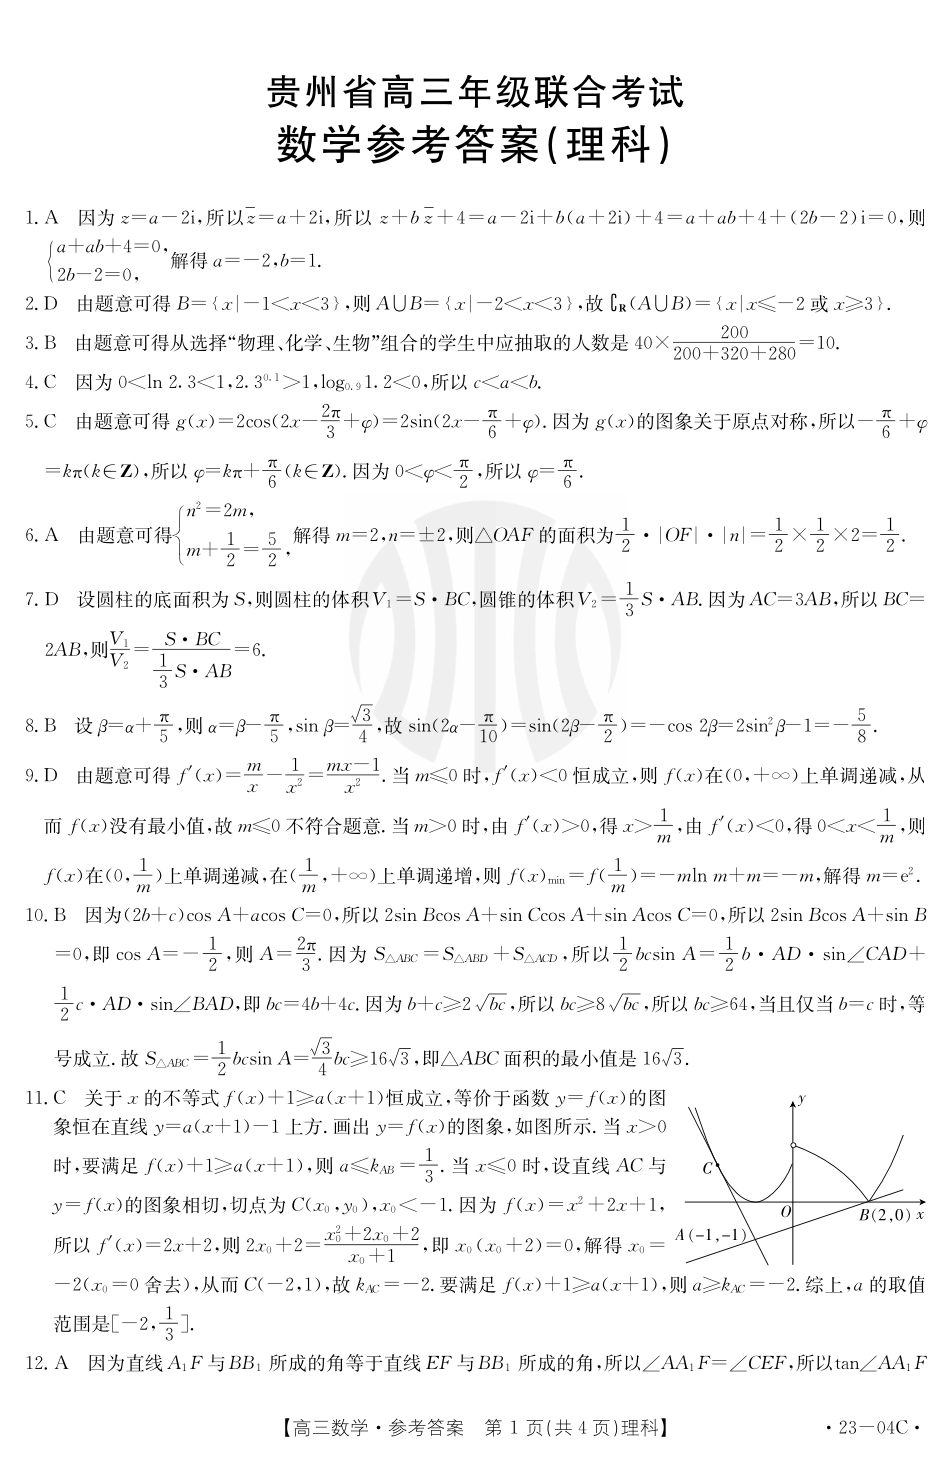 贵州省高三年级联合考试
数学参考答案(理科)
1. A 因为 z=a-2i,所以z̄=a+2i,所以 z+b z̄+4=a-2i+b(a+2i)+4=a+ab+4+(2b-2)i=0,则
{a+ab+4=0, 2b-2=0, 解得 a=-2,b=1.
2. D 由题意可得 B={x|-1<x<3},则 A∪B={x|-2<x<3},故 ∁R(A∪B)={x|x≤-2 或 x≥3}.
3. B 由题意可得从选择“物理、化学、生物”组合的学生中应抽取的人数是 40×200/(200+320+280)=10.
4. C 因为 0<ln 2.3<1,2.3^0.1>1,log₀.₉1.2<0,所以 c<a<b.
5. C 由题意可得 g(x)=2cos(2x-2π/3+φ)=2sin(2x-π/6+φ).因为 g(x)的图象关于原点对称,所以-π/6+φ
=kπ(k∈Z),所以 φ=kπ+π/6(k∈Z).因为 0<φ<π/2,所以 φ=π/6.
6. A 由题意可得{n²=2m, m+1/2=5/2, 解得 m=2,n=±2,则△OAF 的面积为1/2·|OF|·|n|=1/2×1/2×2=1/2.
7. D 设圆柱的底面积为 S,则圆柱的体积V₁=S·BC,圆锥的体积V₂=1/3 S·AB.因为 AC=3AB,所以 BC=
2AB,则V₁/V₂=(S·BC)/(1/3 S·AB)=6.
8. B 设 β=α+π/5,则 α=β-π/5,sin β=√3/4,故 sin(2α-π/10)=sin(2β-π/2)=-cos 2β=2sin²β-1=-5/8.
9. D 由题意可得 f′(x)=m/x-1/x²=(mx-1)/x².当 m≤0 时,f′(x)<0 恒成立,则 f(x)在(0,+∞)上单调递减,从
而 f(x)没有最小值,故 m≤0 不符合题意.当 m>0 时,由 f′(x)>0,得 x>1/m,由 f′(x)<0,得 0<x<1/m,则
f(x)在(0,1/m)上单调递减,在(1/m,+∞)上单调递增,则 f(x)min=f(1/m)=-mln m+m=-m,解得 m=e².
10. B 因为(2b+c)cos A+acos C=0,所以 2sin Bcos A+sin Ccos A+sin Acos C=0,所以 2sin Bcos A+sin B
=0,即 cos A=-1/2,则 A=2π/3.因为 S△ABC=S△ABD+S△ACD,所以1/2 bcsin A=1/2 b·AD·sin∠CAD+
1/2 c·AD·sin∠BAD,即 bc=4b+4c.因为 b+c≥2√bc,所以 bc≥8√bc,所以 bc≥64,当且仅当 b=c 时,等
号成立.故 S△ABC=1/2 bcsin A=√3/4 bc≥16√3,即△ABC 面积的最小值是 16√3.
11. C 关于 x 的不等式 f(x)+1≥a(x+1)恒成立,等价于函数 y=f(x)的图
象恒在直线 y=a(x+1)-1 上方.画出 y=f(x)的图象,如图所示.当 x>0
时,要满足 f(x)+1≥a(x+1),则 a≤kAB=1/3.当 x≤0 时,设直线 AC 与
y=f(x)的图象相切,切点为 C(x₀,y₀),x₀<-1.因为 f(x)=x²+2x+1,
所以 f′(x)=2x+2,则 2x₀+2=(x₀²+2x₀+2)/(x₀+1),即 x₀(x₀+2)=0,解得 x₀=
-2(x₀=0 舍去),从而 C(-2,1),故 kAC=-2.要满足 f(x)+1≥a(x+1),则 a≥kAC=-2.综上,a 的取值
范围是[-2,1/3].
y
C
O
B(2,0) x
A(-1,-1)
12. A 因为直线 A₁F 与BB₁ 所成的角等于直线 EF 与BB₁ 所成的角,所以∠AA₁F=∠CEF,所以tan∠AA₁F
【高三数学·参考答案 第 1 页(共 4 页)理科】
·23-04C·